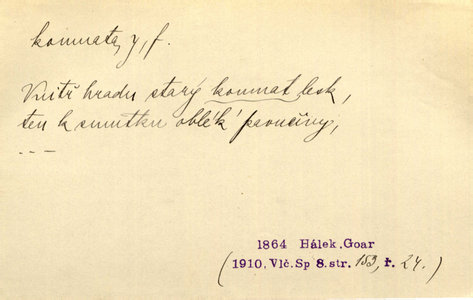 komnata, y, f.
Vnitř hradu starý komnat lesk,
ten k smutku oblék' pavučiny,
---
1864 Hálek.Goar
(1910, Vlč.Sp 8.str. 153, ř. 24.)